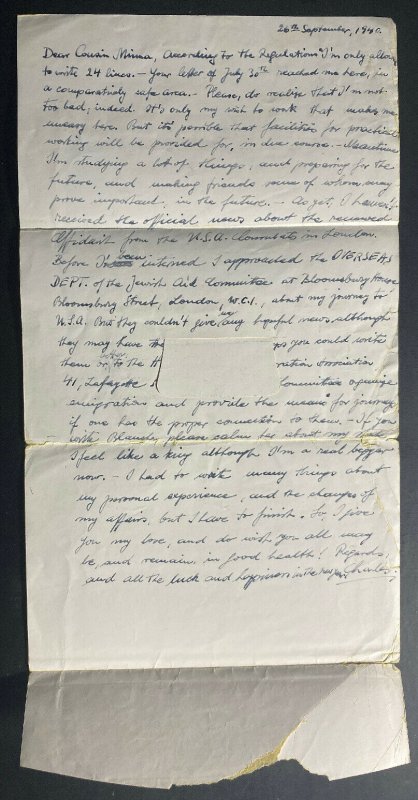 26th September, 1940.
Dear Cousin Minna, According to the Regulations I'm only allowed
to write 24 lines. - Your letter of July 30th reached me here, in
a comparatively safe area. - Please, do realize that I'm not
too bad, indeed. It's only my wish to work that makes me
uneasy here. But it's possible that facilities for practical
working will be provided for, in due course. - Meantime
I'm studying a lot of things, and preparing for the
future, and making friends some of whom may
prove important, in the future. - As yet, I haven't
received the official news about the renewed
Affidavit from the U.S.A. Consulate in London.
Before I been interned I approached the OVERSEAS
DEPT. of the Jewish Aid Committee at Bloomsbury House
Bloomsbury Street, London, W.C.1., about my journey to
U.S.A. But they couldn't give any hopeful news although
they may have the you could write
them or, to the H Association
41, Lafayette Committees organize
emigration and provide the means for journey
if one has the proper connections to them. - If you
write Blanche, please calm her about my
I feel like a king although I'm a real beggar
now. - I had to write many things about
my personal experience, and the changes of
my affairs, but I have to finish. So I give
you my love, and do wish you all may
be, and remain in good health! Regards,
and all the luck and happiness in the new year Charles.